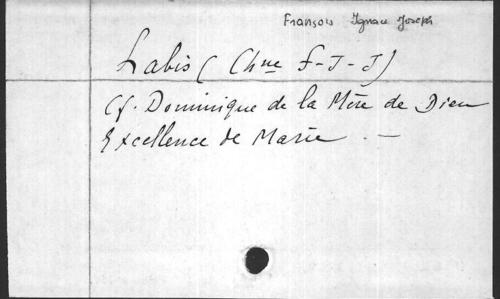 François Ignace Joseph
Labis (Chne F-I-J)
Cf. Dominique de la Mère de Dieu
Excellence de Marie. —